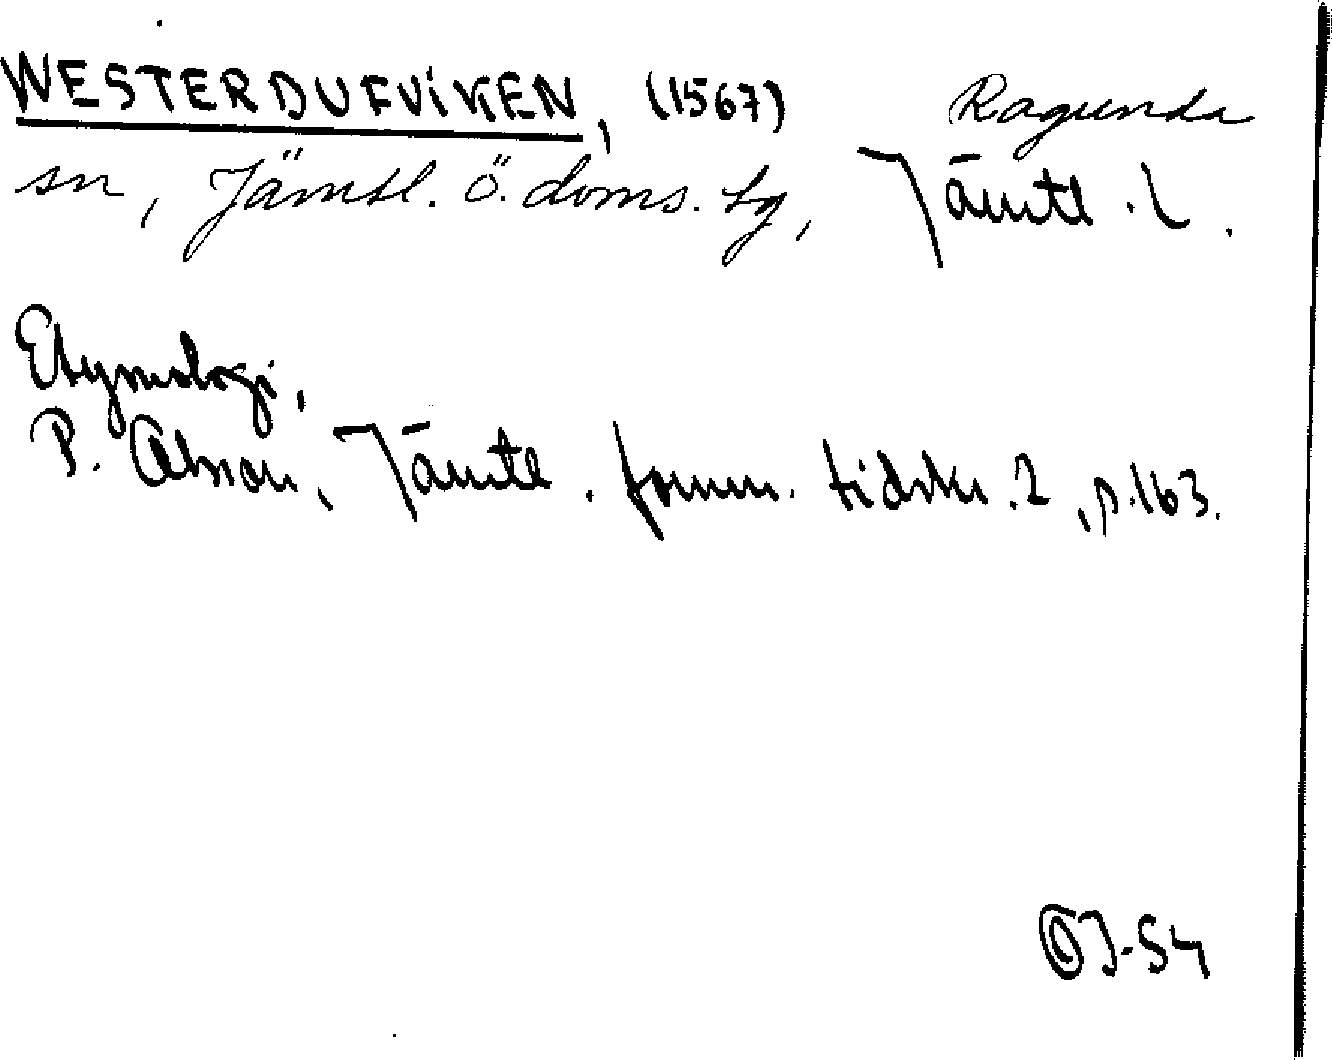 WESTERDUFVIKEN, (1567) Ragunda
sn, Jämtl. ö. doms. tg, Jämtl. l.
Etymologi,
P. Olsson, Jämtl. fornm. tidskr. 2, p. 163.
OJ-54